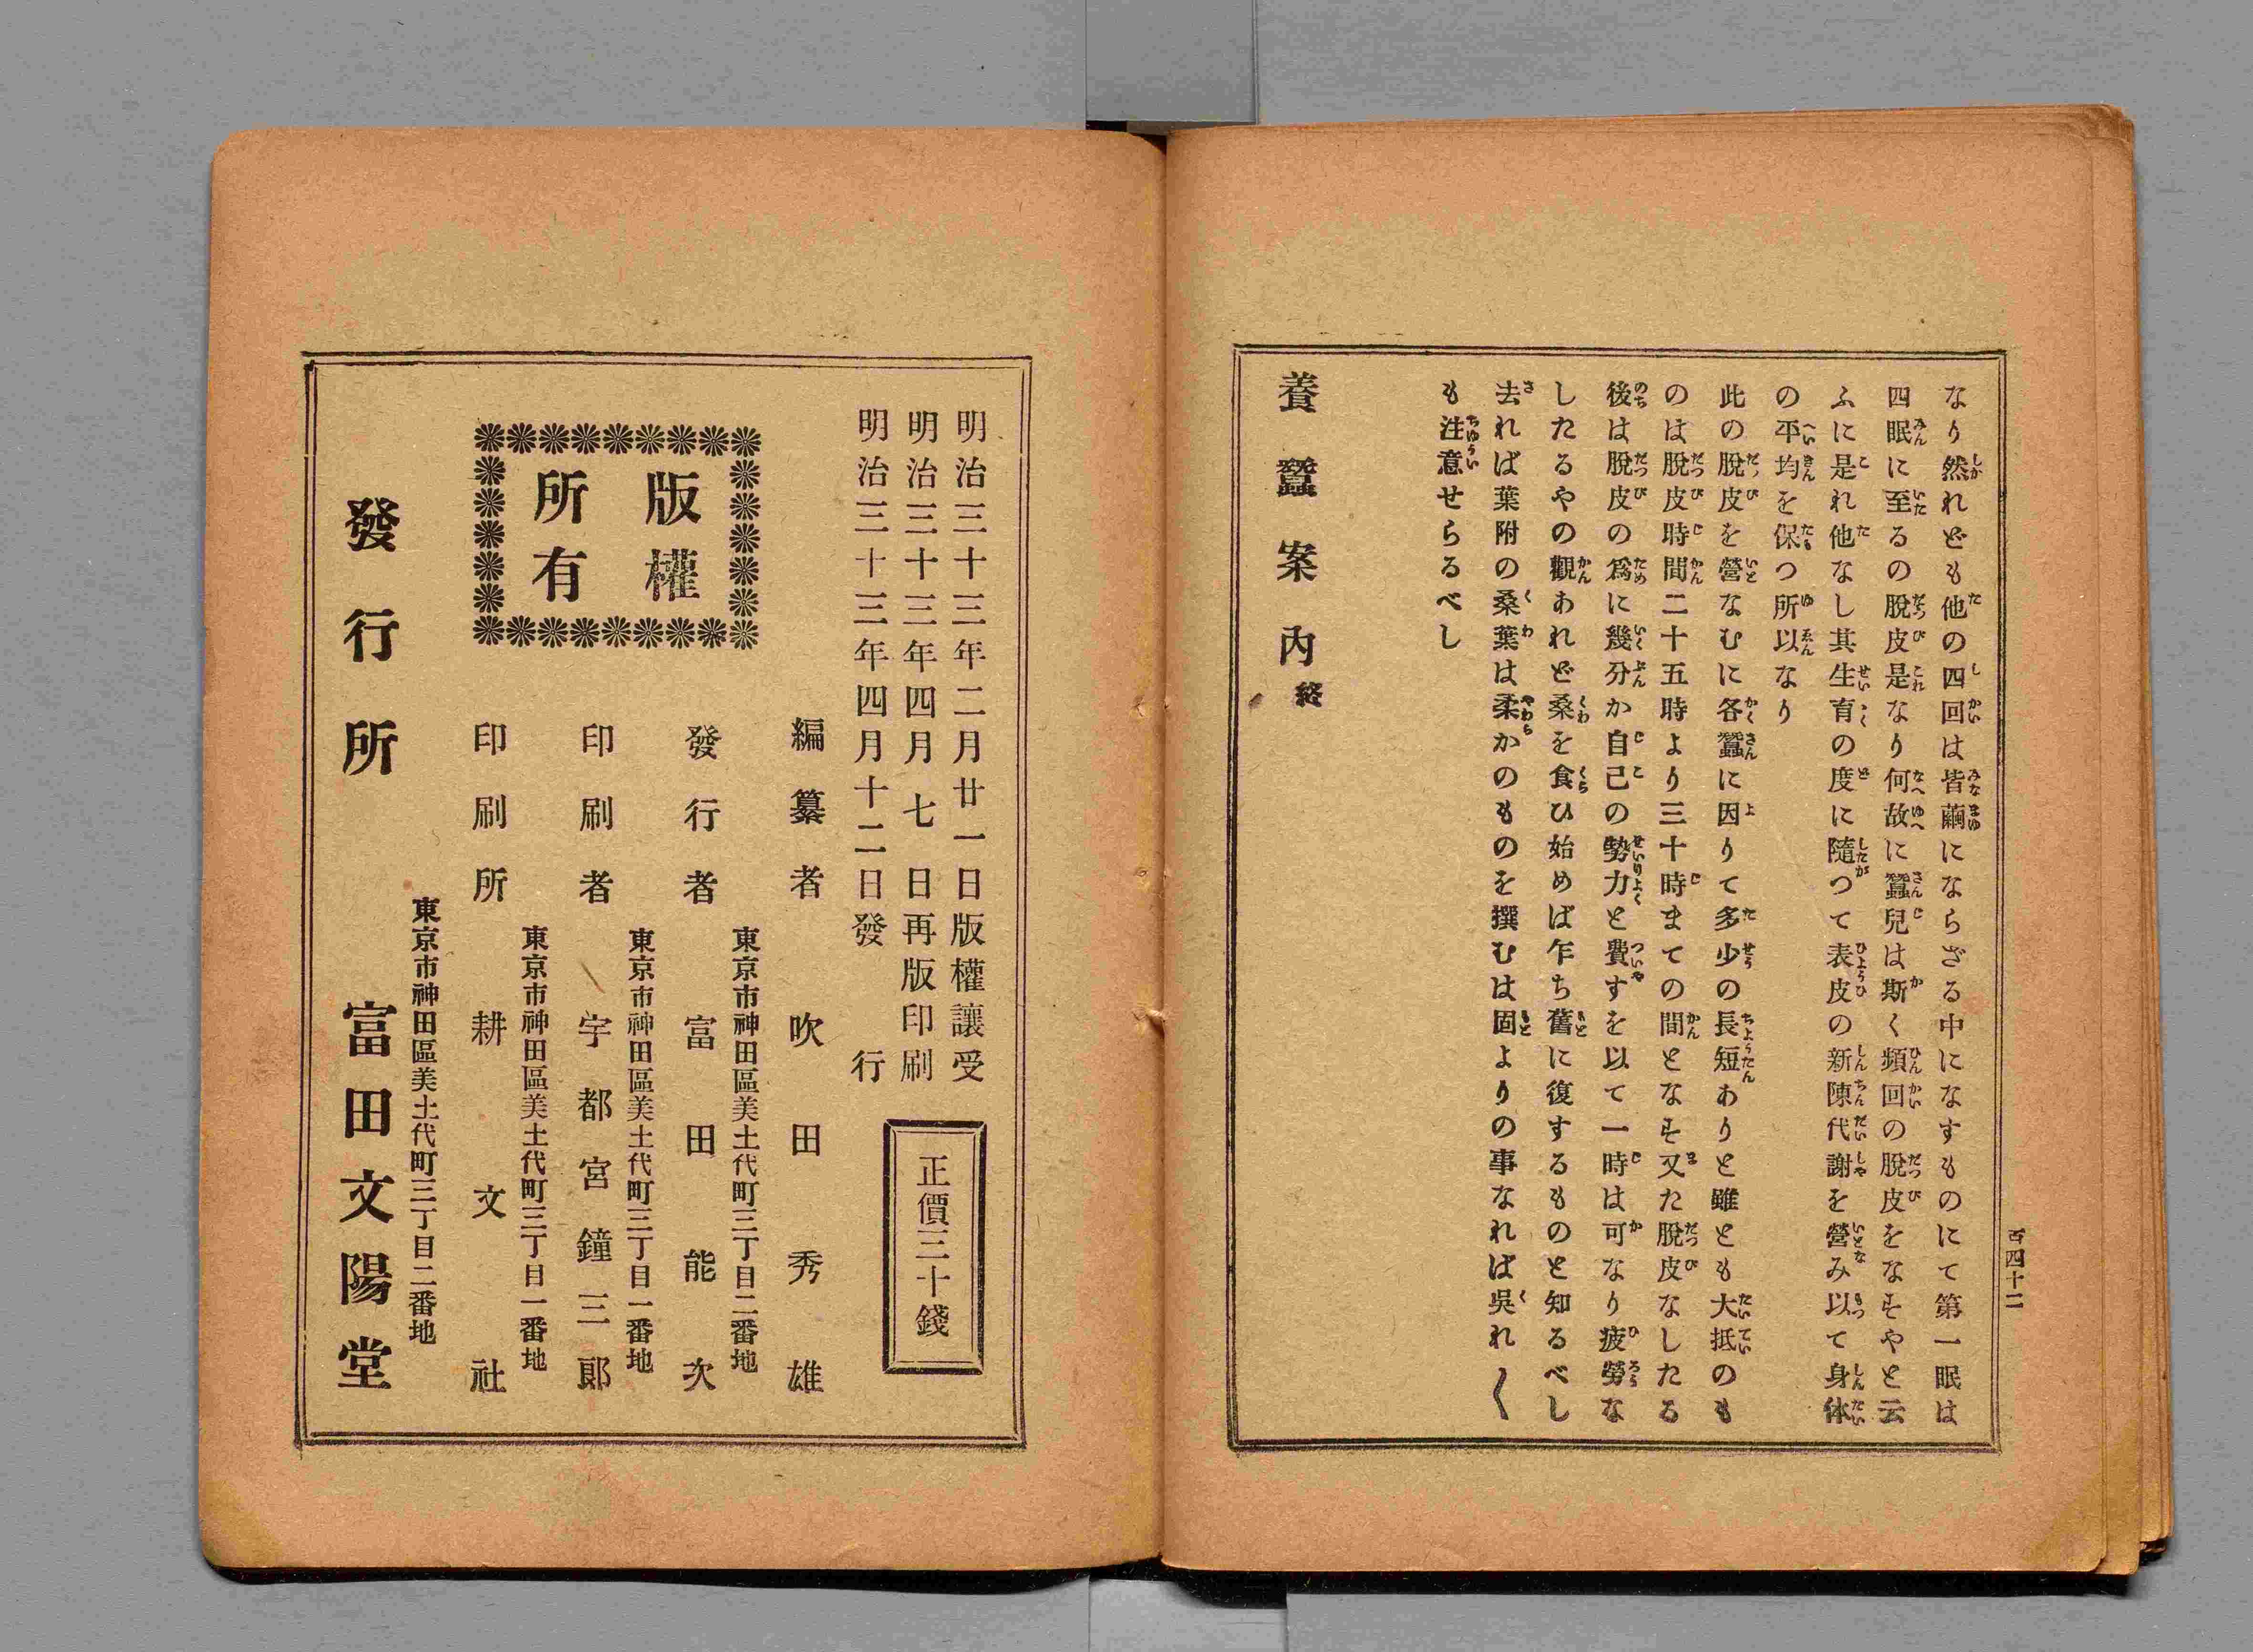 百四十二
なり然れども他の四回は皆繭にならざる中になすものにて第一眠は
四眠に至るの脫皮是なり何故に蠶兒は斯く頻回の脫皮をなすやと云
ふに是れ他なし其生育の度に隨つて表皮の新陳代謝を營み以て身体
の平均を保つ所以なり
此の脫皮を營なむに各蠶に因りて多少の長短ありと雖とも大抵のも
のは脫皮時間二十五時より三十時まての間となす又た脫皮なしたる
後は脫皮の爲に幾分か自己の勢力と費すを以て一時は可なり疲勞な
したるやの觀あれど桑を食ひ始めば乍ち舊に復するものと知るべし
去れば葉附の桑葉は柔かのものを撰むは固よりの事なれば吳れ〱
も注意せらるべし
養蠶案内終
明治三十三年二月廿一日版權讓受
明治三十三年四月七日再版印刷
明治三十三年四月十二日發行
正價三十錢
版權
所有
編纂者 吹田秀雄
東京市神田區美土代町三丁目二番地
發行者 富田能次
東京市神田區美土代町三丁目一番地
印刷者 宇都宮鐘三郞
東京市神田區美土代町三丁目一番地
印刷所 耕文社
東京市神田區美土代町三丁目二番地
發行所 富田文陽堂